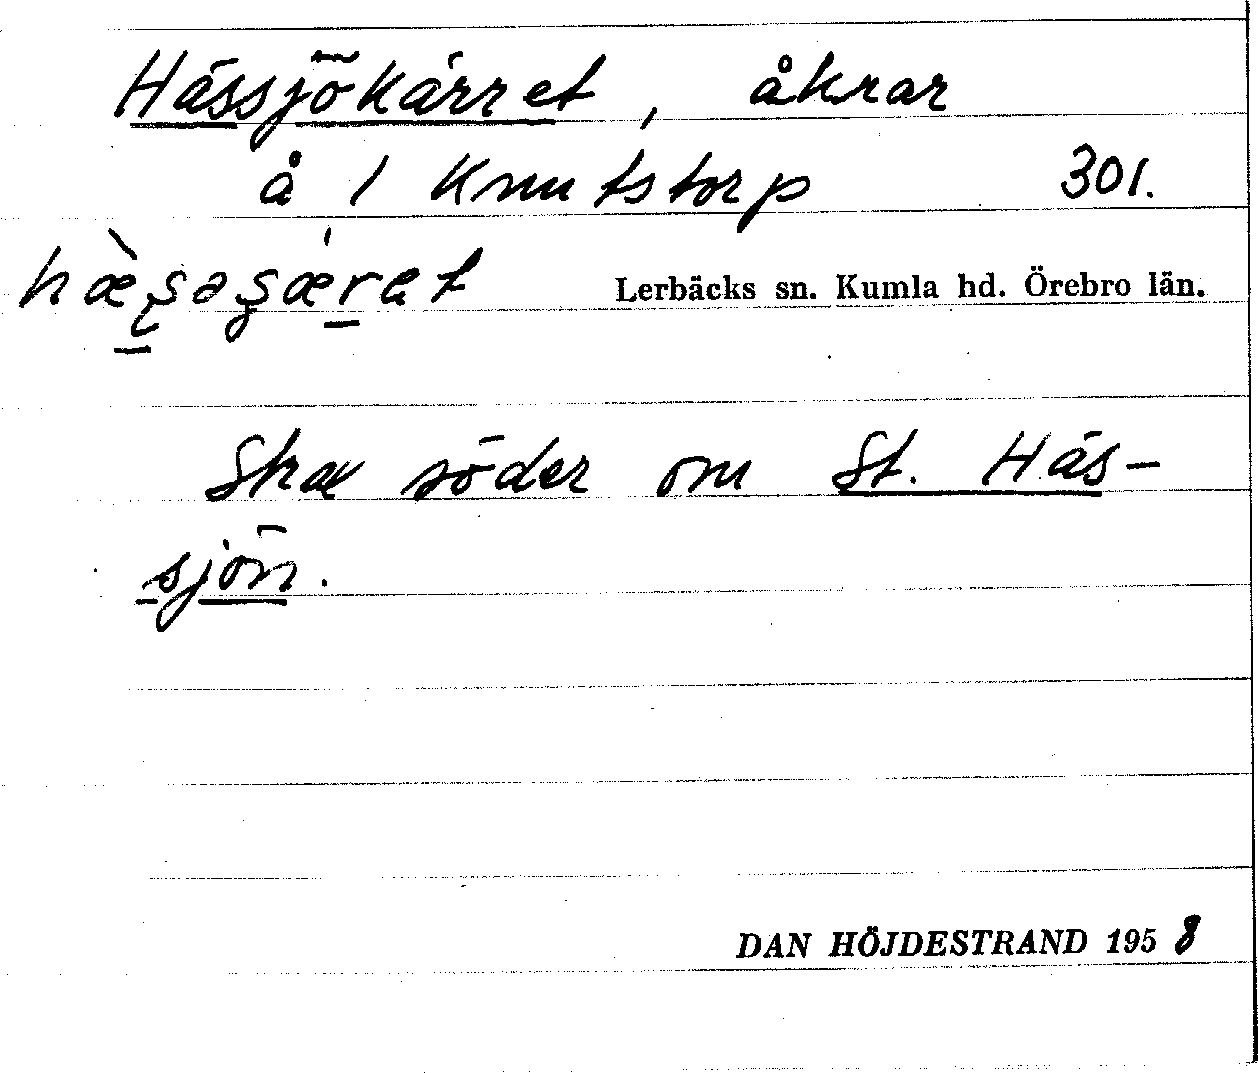 Hässjökärret, åkrar
å 1 Knutstorp 301.
Lerbäcks sn. Kumla hd. Örebro län.
Ska söder om St. Häs-
sjön.
DAN HÖJDESTRAND 1958